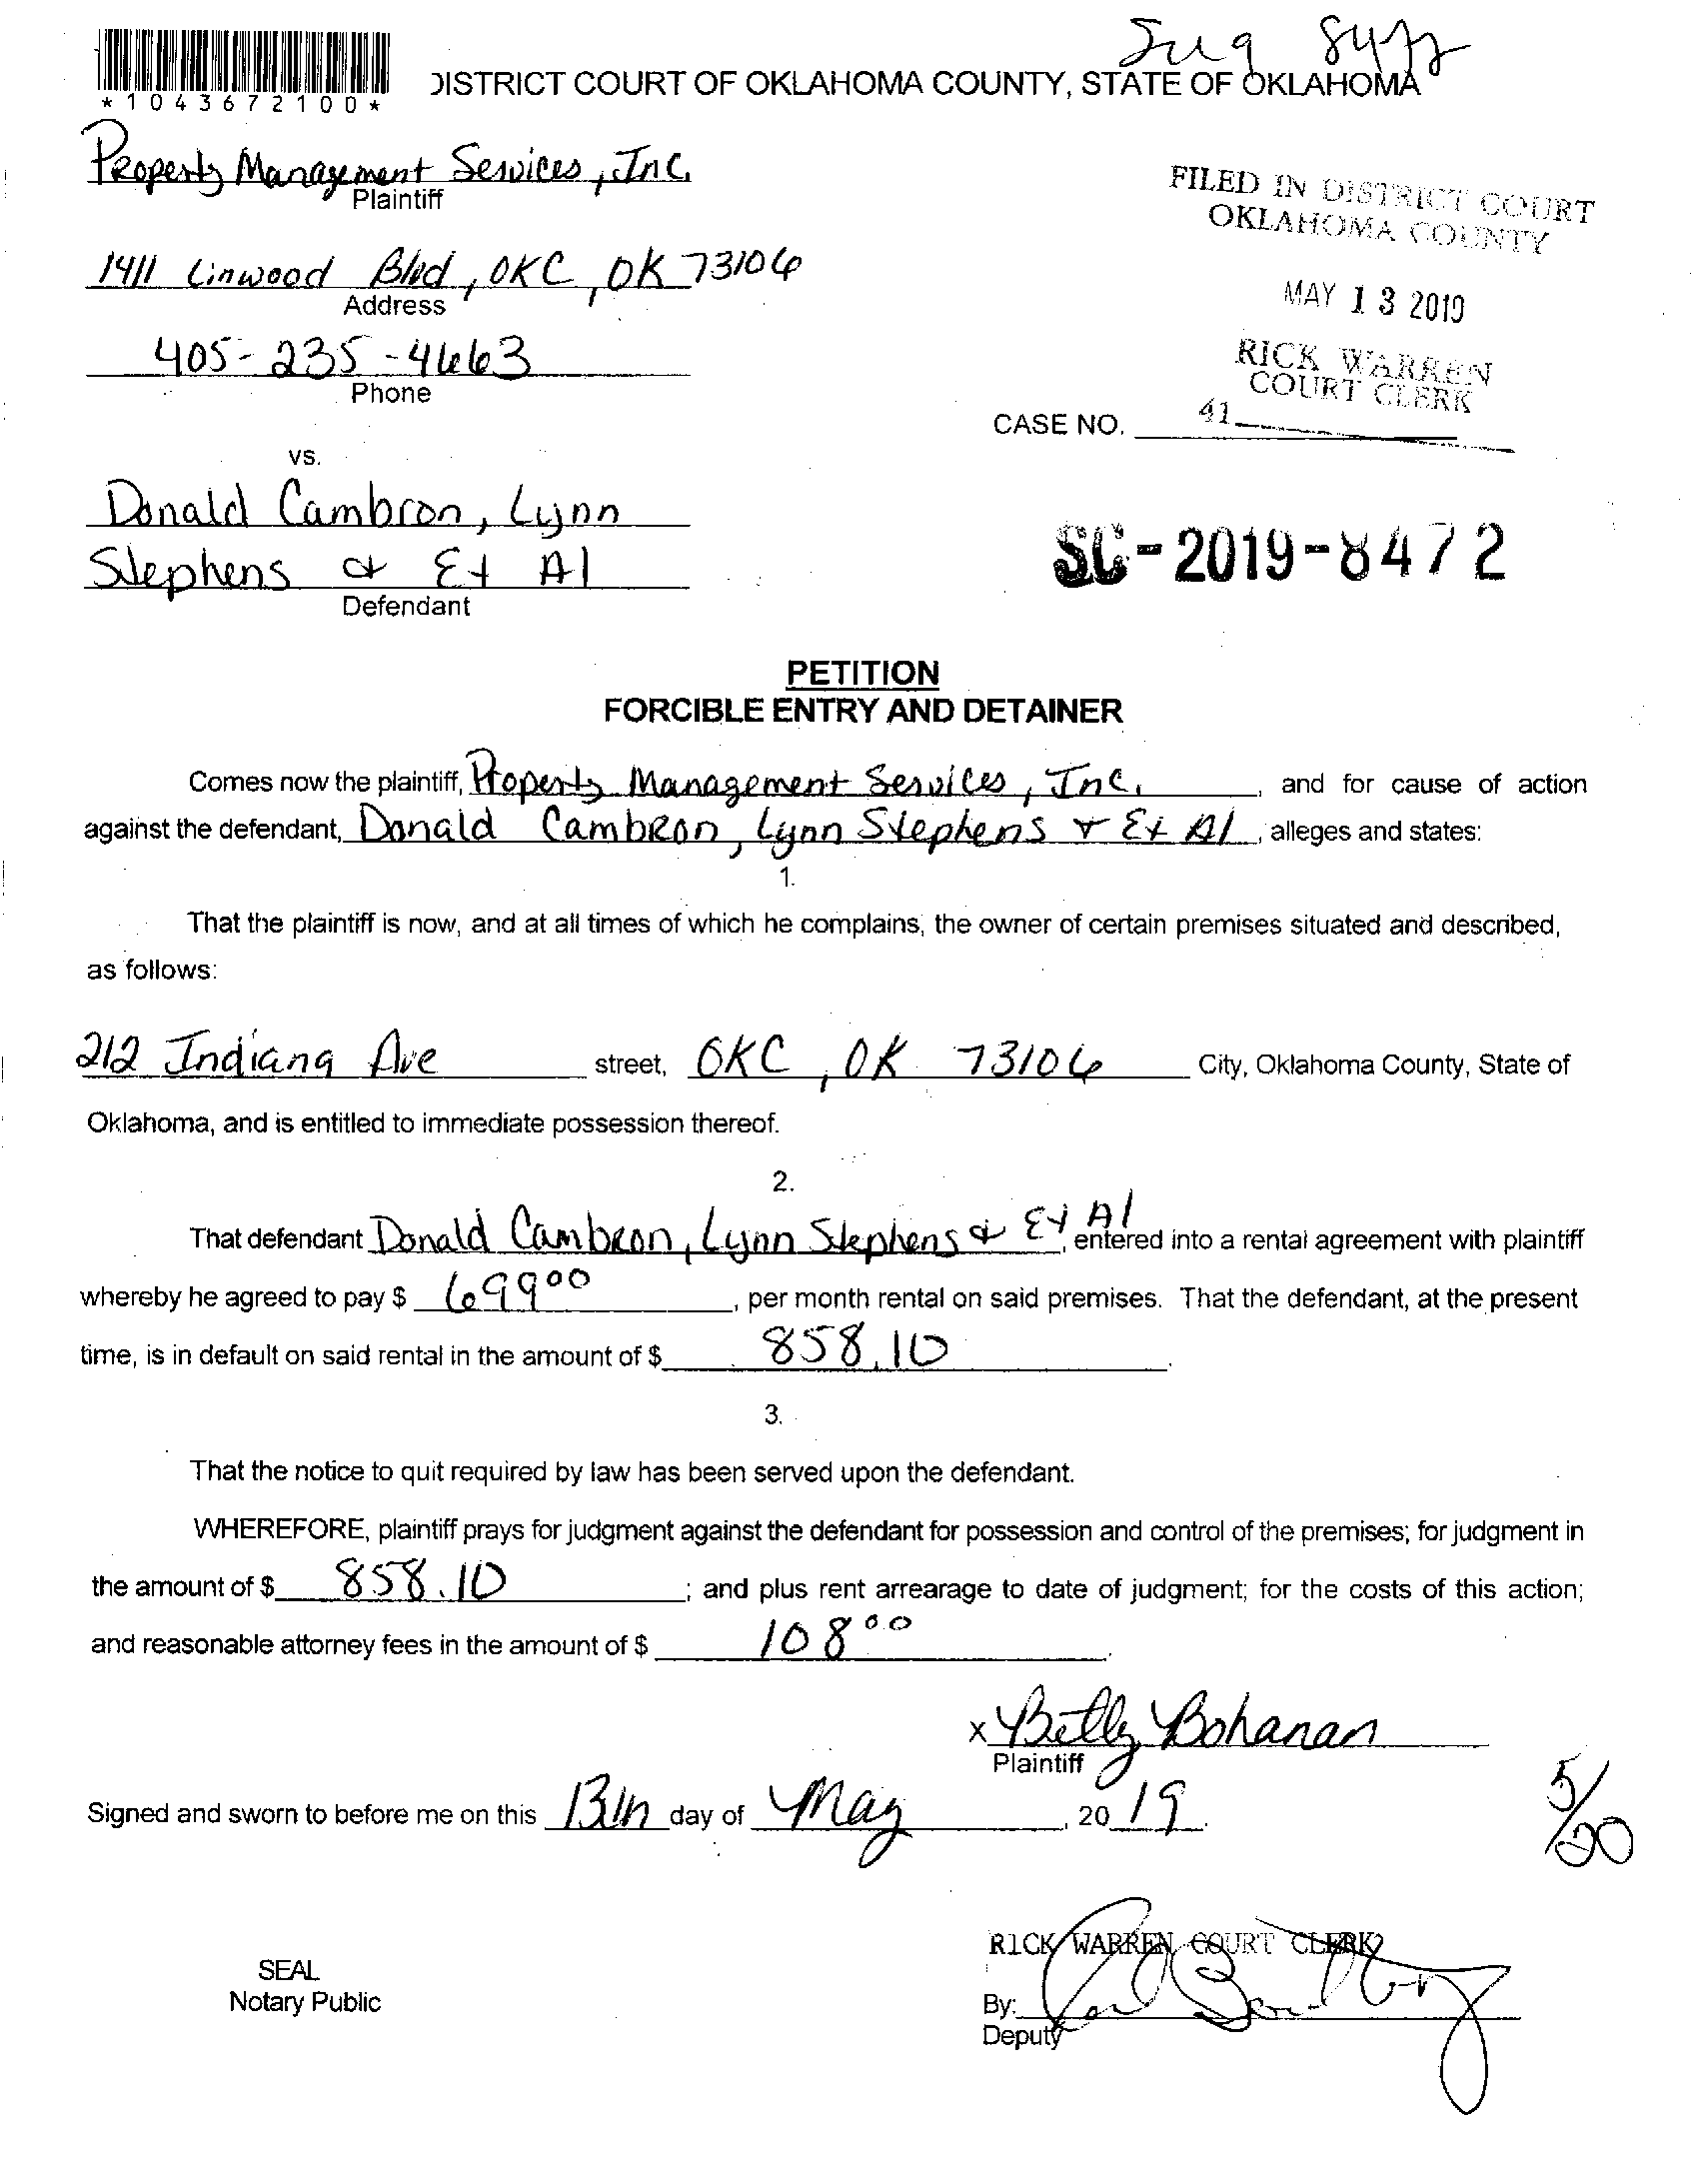 8472
*1043672100*
DISTRICT COURT OF OKLAHOMA COUNTY, STATE OF OKLAHOMA
Property Management Services, Inc.
Plaintiff
FILED IN DISTRICT COURT
OKLAHOMA COUNTY
1411 Linwood Blvd, OKC, OK 73106
Address
MAY 13 2019
405-235-4663
Phone
RICK WARREN
COURT CLERK
CASE NO. 41
vs.
Donald Cambron, Lynn
Stephens & Et Al
Defendant
SC-2019-8472
PETITION
FORCIBLE ENTRY AND DETAINER
Comes now the plaintiff, Property Management Services, Inc. , and for cause of action
against the defendant, Donald Cambron, Lynn Stephens & Et Al , alleges and states:
1.
That the plaintiff is now, and at all times of which he complains, the owner of certain premises situated and described,
as follows:
212 Indiana Ave street, OKC, OK 73106 City, Oklahoma County, State of
Oklahoma, and is entitled to immediate possession thereof.
2.
That defendant Donald Cambron, Lynn Stephens & Et Al, entered into a rental agreement with plaintiff
whereby he agreed to pay $ 699.00 , per month rental on said premises. That the defendant, at the present
time, is in default on said rental in the amount of $ 858.10 .
3.
That the notice to quit required by law has been served upon the defendant.
WHEREFORE, plaintiff prays for judgment against the defendant for possession and control of the premises; for judgment in
the amount of $ 858.10 ; and plus rent arrearage to date of judgment; for the costs of this action;
and reasonable attorney fees in the amount of $ 108.00 .
X Betty Bohanan
Plaintiff
Signed and sworn to before me on this 13th day of May , 20 19.
5/20
RICK WARREN COURT CLERK
SEAL
Notary Public
By:
Deputy